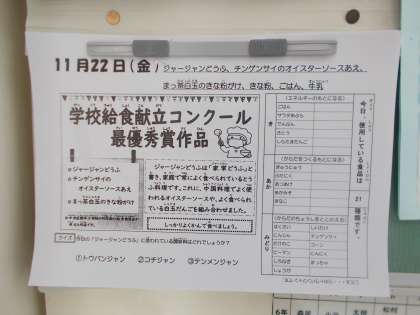 11月22日(金) ジャージャンどうふ、チンゲンサイのオイスターソースあえ、
まっ茶白玉のきな粉がけ、ごはん、牛乳
学校給食献立コンクール
最優秀賞作品
ジャージャンどうふ
チンゲンサイの
オイスターソースあえ
まっ茶白玉のきな粉がけ
ジャージャンどうふは「家常どうふ」と
書き、家庭で常によく食べられているとう
ふ料理です。これに、中国料理でよく使
われるオイスターソースや、よく食べられ
ている白玉だんごを組み合わせました。
しっかりよくかんで食べましょう。
クイズ 今日の「ジャージャンどうふ」に使われている調味料はどれでしょうか?
①トウバンジャン ②コチジャン ③テンメンジャン
今日、使用している食品は 21 種類です。
き
(エネルギーのもとになる)
ごはん
サラダあぶら
でんぷん
さとう
しらたまだんご
あか
(からだをつくるもとになる)
ぎゅうにゅう
なまあげ
みそ
きなこ
みどり
(からだのちょうしをととのえる)
はくさい
しいたけ
にんじん
チンゲンサイ
たけのこ
コーン
ピーマン
にんにく
しろねぎ
まっちゃ
しょうが
6年
松村